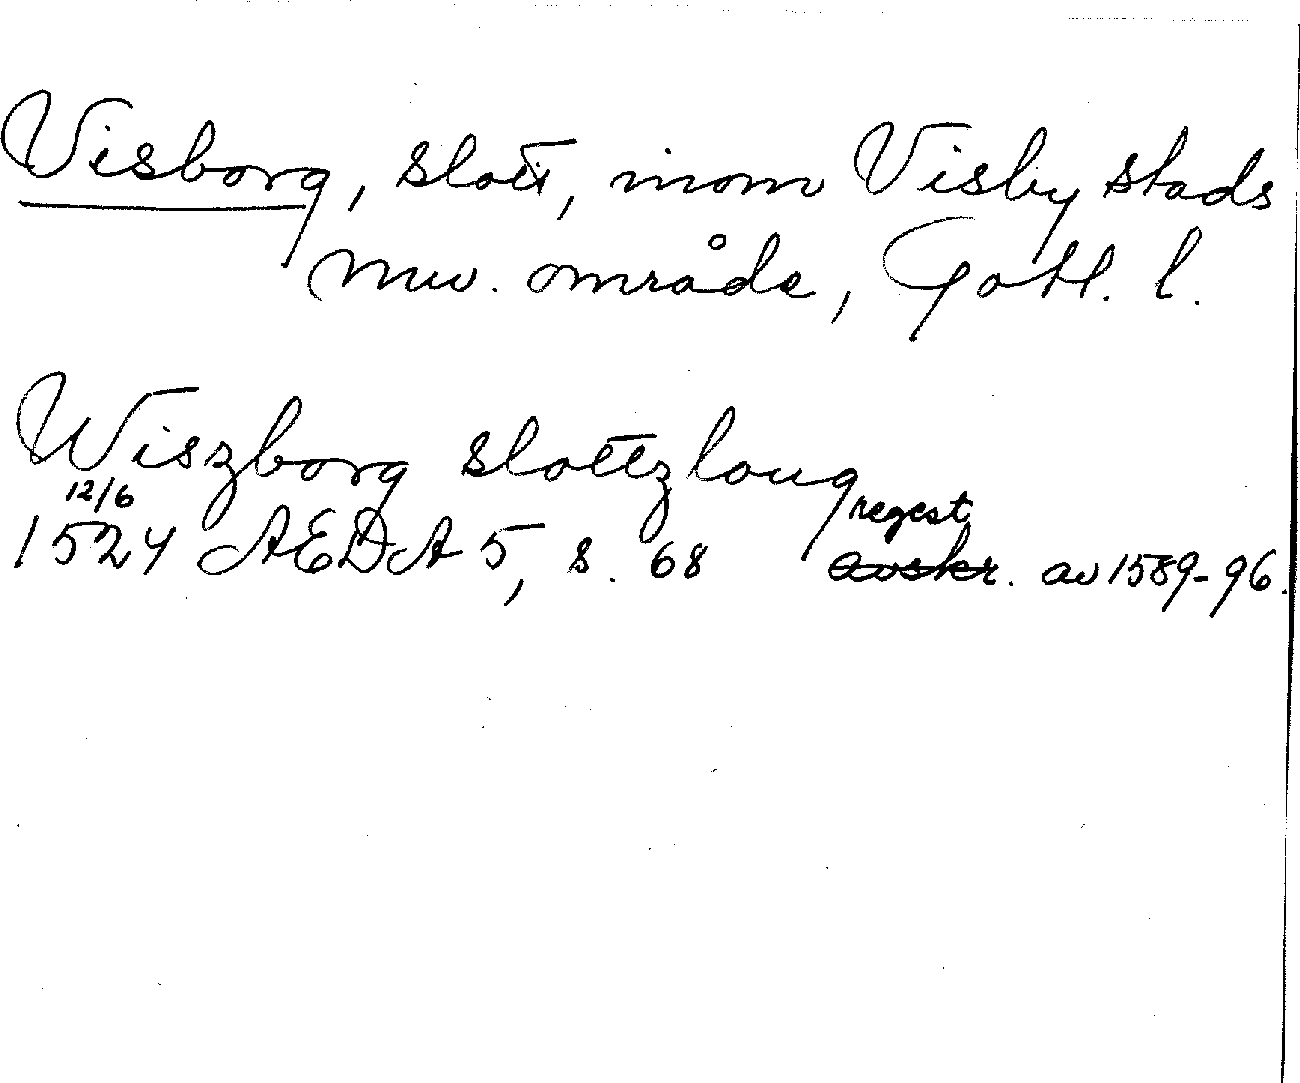 Visborg, slott, inom Visby stads
nuv. område, Gotl. l.
Wiszborg slottzloug
12/6 regest
1524 AEDA 5, s. 68 avskr. av 1589-96.